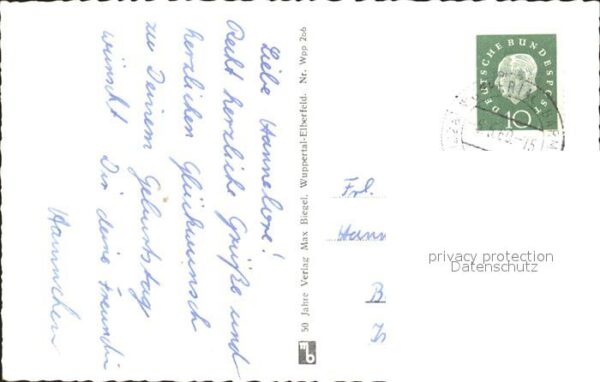 Liebe Hannelore!
Recht herzliche Grüße und
herzlichen Glückwunsch
zu Deinem Geburtstag
wünscht Dir deine Freundin
Hannchen
50 Jahre Verlag Max Biegel. Wuppertal-Elberfeld. Nr. Wpp 206
mb
DEUTSCHE BUNDESPOST
10
Frl.
Hann
B
privacy protection
Datenschutz